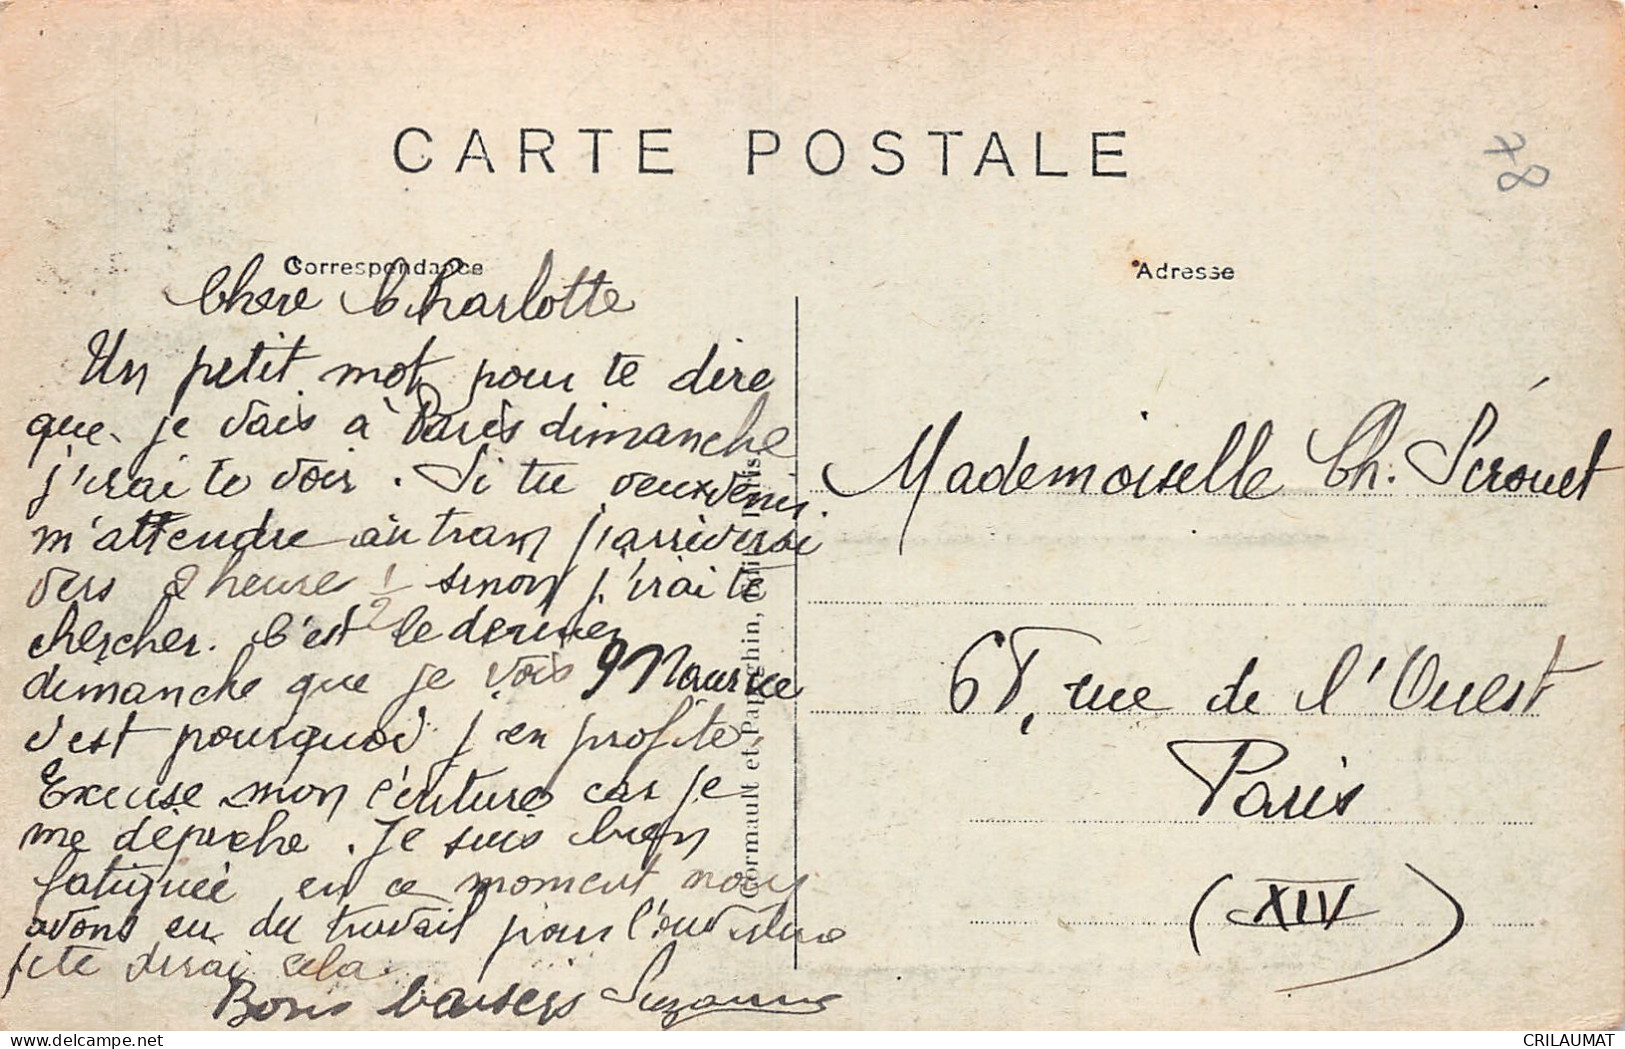 CARTE POSTALE
78
Correspondance
Adresse
Chere Charlotte
Un petit mot pour te dire
que je vais à Paris dimanche
j'irai te voir. Si tu veux venir
m'attendre au tram j'arriverai
vers 2 heure 1/2 sinon j'irai te
chercher. C'est le dernier
dimanche que je vois Maurice
c'est pourquoi j'en profite
Excuse mon écriture car je
me dépêche. Je suis bien
fatiguée en ce moment nous
avons eu du travail pour l'ouverture
je te dirai cela
Bons baisers Suzanne
Gormault et Papeghin, Édit., Paris
Mademoiselle Ch. Scrouet
68, rue de l'Ouest
Paris
(XIV)
CRILAUMAT
delcampe.net